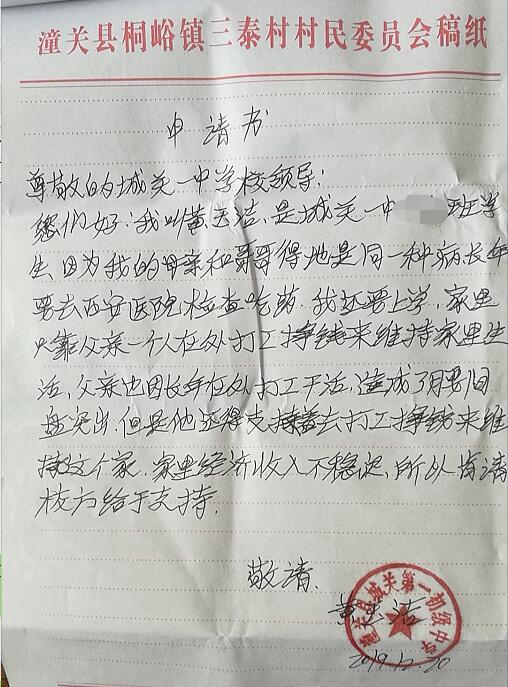 潼关县桐峪镇三泰村村民委员会稿纸
申请书
尊敬的城关一中学校领导:
您们好:我叫黄玉洁,是城关一中班学
生,因为我的母亲和哥哥得地是同一种病长年
要去西安医院检查吃药.我还要上学,家里
只靠父亲一个人在外打工挣钱来维持家里生
活,父亲也因长年在外打工干活,造成了腰间
盘突出.但是他还得支撑着去打工挣钱来维
持这个家.家里经济收入不稳定,所以肯请
校方给于支持.
敬请.
黄玉洁
潼关县城关第一初级中学
2019.12.20